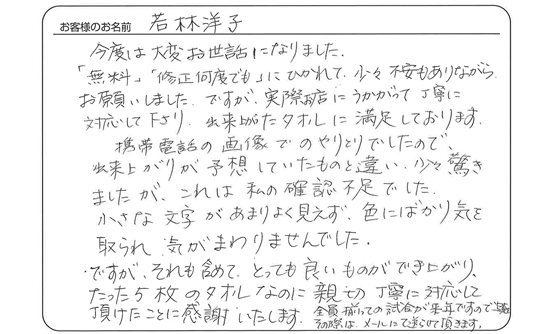 お客様のお名前 若林洋子
今度は大変お世話になりました.
「無料」「修正何度でも」にひかれて、少々不安もありながら
お願いしました. ですが、実際お店にうかがって丁寧に
対応して下さり、出来上がたタオルに満足しております.
携帯電話の画像でのやりとりでしたので、
出来上がりが予想していたものと違い、少々驚き
ましたが、これは私の確認不足でした.
小さな文字があまりよく見えず、色にばかり気を
取られ 気がまわりませんでした.
・ですが、それも含めて、とっても良いものができ上がり、
たった5枚のタオルなのに親切丁寧に対応して
頂けたことに感謝いたします. 全員揃っての試合が来年ですので
その際は、メールにて送らせて頂きます.